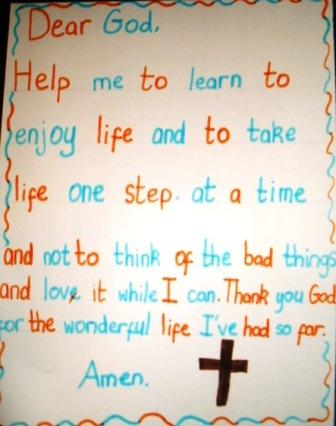 Dear God,
Help me to learn to
enjoy life and to take
life one step. at a time
and not to think of the bad things
and love it while I can. Thank you God
for the wonderful life I've had so far.
Amen.